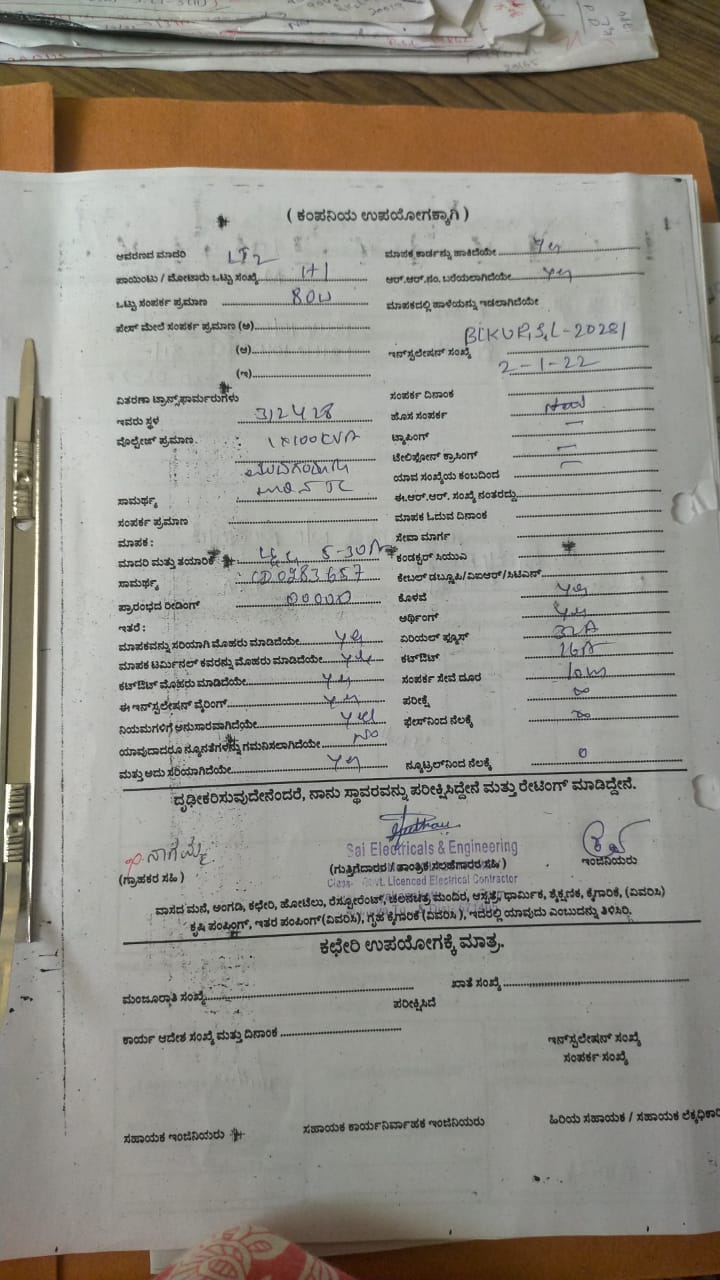 ( ಕಂಪನಿಯ ಉಪಯೋಗಕ್ಕಾಗಿ )
1
ಆವರಣದ ಮಾದರಿ LT2
ಮಾಪಕ ಕಾರ್ಡನ್ನು ಹಾಕಿದೆಯೇ Yes
ಪಾಯಿಂಟು / ಮೋಟಾರು ಒಟ್ಟು ಸಂಖ್ಯೆ 1+1
ಆರ್.ಆರ್.ನಂ. ಬರೆಯಲಾಗಿದೆಯೇ Yes
ಒಟ್ಟು ಸಂಪರ್ಕ ಪ್ರಮಾಣ 80W
ಮಾಪಕದಲ್ಲಿ ಹಾಳೆಯನ್ನು ಇಡಲಾಗಿದೆಯೇ
ಪೇಸ್ ಮೇಲೆ ಸಂಪರ್ಕ ಪ್ರಮಾಣ (ಅ)
(ಆ)
ಇನ್‌ಸ್ಟಲೇಷನ್ ಸಂಖ್ಯೆ
(ಇ)
2-1-22
ವಿತರಣಾ ಟ್ರಾನ್ಸ್‌ಫಾರ್ಮರುಗಳು
ಸಂಪರ್ಕ ದಿನಾಂಕ
ಇವರು ಸ್ಥಳ 312428
ಹೊಸ ಸಂಪರ್ಕ
ವೊಲ್ಟೇಜ್ ಪ್ರಮಾಣ 1x100KVA
ಟ್ಯಾಪಿಂಗ್ -
ಟೆಲಿಫೋನ್ ಕ್ರಾಸಿಂಗ್ -
ಯಾವ ಸಂಖ್ಯೆಯ ಕಂಬದಿಂದ -
ಸಾಮರ್ಥ್ಯ
ಈ.ಆರ್.ಆರ್. ಸಂಖ್ಯೆ ನಂತರದ್ದು
ಸಂಪರ್ಕ ಪ್ರಮಾಣ
ಮಾಪಕ ಓದುವ ದಿನಾಂಕ
ಮಾಪಕ :
ಸೇವಾ ಮಾರ್ಗ
ಮಾದರಿ ಮತ್ತು ತಯಾರಿಕೆ 5-30A
ಕಂಡಕ್ಟರ್ ಸಿಯುಎ
ಸಾಮರ್ಥ್ಯ CD0983657
ಕೇಬಲ್ ಡಬ್ಲ್ಯೂಪಿ/ವಿಐಆರ್/ಸಿಟಿಎಸ್
ಪ್ರಾರಂಭದ ರೀಡಿಂಗ್ 00000
ಕೊಳವೆ Yes
ಇತರೆ :
ಅರ್ಥಿಂಗ್ Yes
ಮಾಪಕವನ್ನು ಸರಿಯಾಗಿ ಮೊಹರು ಮಾಡಿದೆಯೇ Yes
ಏರಿಯಲ್ ಫ್ಯೂಸ್ 32A
ಮಾಪಕ ಟರ್ಮಿನಲ್ ಕವರನ್ನು ಮೊಹರು ಮಾಡಿದೆಯೇ Yes
ಕಟ್‌ಔಟ್ 16A
ಕಟ್‌ಔಟ್ ಮೊಹರು ಮಾಡಿದೆಯೇ Yes
ಸಂಪರ್ಕ ಸೇವೆ ದೂರ 10m
ಈ ಇನ್‌ಸ್ಟಲೇಷನ್ ವೈರಿಂಗ್ Yes
ಪರೀಕ್ಷೆ ∞
ನಿಯಮಗಳಿಗೆ ಅನುಸಾರವಾಗಿದೆಯೇ Yes
ಫೇಸ್‌ನಿಂದ ನೆಲಕ್ಕೆ ∞
ಯಾವುದಾದರೂ ನ್ಯೂನತೆಗಳನ್ನು ಗಮನಿಸಲಾಗಿದೆಯೇ No
ಮತ್ತು ಅದು ಸರಿಯಾಗಿದೆಯೇ Yes
ನ್ಯೂಟ್ರಲ್‌ನಿಂದ ನೆಲಕ್ಕೆ 0
ದೃಢೀಕರಿಸುವುದೇನೆಂದರೆ, ನಾನು ಸ್ಥಾವರವನ್ನು ಪರೀಕ್ಷಿಸಿದ್ದೇನೆ ಮತ್ತು ರೇಟಿಂಗ್ ಮಾಡಿದ್ದೇನೆ.
ನಾಗಮ್ಮ
Sai Electricals & Engineering
(ಗ್ರಾಹಕರ ಸಹಿ)
(ಗುತ್ತಿಗೆದಾರರ / ತಾಂತ್ರಿಕ ಸಲಹೆಗಾರರ ಸಹಿ)
ಇಂಜಿನಿಯರು
Class- Govt. Licenced Electrical Contractor
ವಾಸದ ಮನೆ, ಅಂಗಡಿ, ಕಛೇರಿ, ಹೋಟೆಲು, ರೆಸ್ಟೋರೆಂಟ್, ಚಲನಚಿತ್ರ ಮಂದಿರ, ಆಸ್ಪತ್ರೆ, ಧಾರ್ಮಿಕ, ಶೈಕ್ಷಣಿಕ, ಕೈಗಾರಿಕೆ, (ವಿವರಿಸಿ)
ಕೃಷಿ ಪಂಪಿಂಗ್, ಇತರ ಪಂಪಿಂಗ್ (ವಿವರಿಸಿ), ಗೃಹ ಕೈಗಾರಿಕೆ (ವಿವರಿಸಿ), ಇದರಲ್ಲಿ ಯಾವುದು ಎಂಬುದನ್ನು ತಿಳಿಸಿರಿ.
ಕಛೇರಿ ಉಪಯೋಗಕ್ಕೆ ಮಾತ್ರ.
ಮಂಜೂರಾತಿ ಸಂಖ್ಯೆ
ಖಾತೆ ಸಂಖ್ಯೆ
ಪರೀಕ್ಷಿಸಿದೆ
ಕಾರ್ಯ ಆದೇಶ ಸಂಖ್ಯೆ ಮತ್ತು ದಿನಾಂಕ
ಇನ್‌ಸ್ಟಲೇಷನ್ ಸಂಖ್ಯೆ
ಸಂಪರ್ಕ ಸಂಖ್ಯೆ
ಸಹಾಯಕ ಇಂಜಿನಿಯರು
ಸಹಾಯಕ ಕಾರ್ಯನಿರ್ವಾಹಕ ಇಂಜಿನಿಯರು
ಹಿರಿಯ ಸಹಾಯಕ / ಸಹಾಯಕ ಲೆಕ್ಕಧಿಕಾರಿ